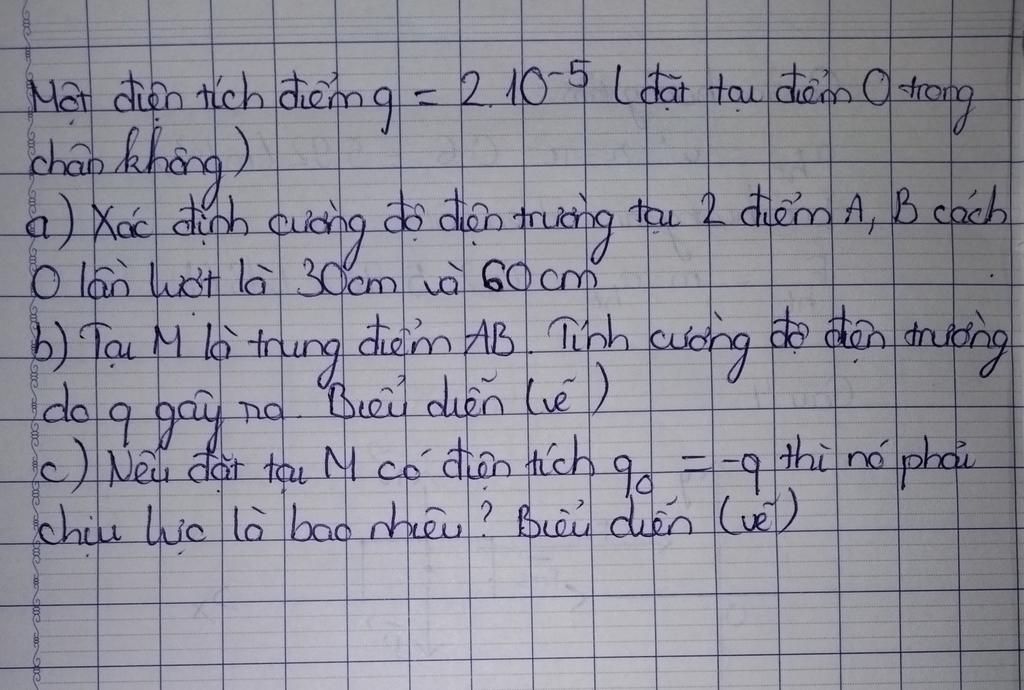 Một điện tích điểm q = 2.10-5 ( đặt tại điểm O trong
chân không)
a) Xác định cường độ điện trường tại 2 điểm A, B cách
O lần lượt là 30cm và 60cm
b) Tại M là trung điểm AB. Tính cường độ điện trường
do q gây ra. Biểu diễn (vẽ)
c) Nếu đặt tại M có điện tích q0 = -q thì nó phải
chịu lực là bao nhiêu? Biểu diễn (vẽ)